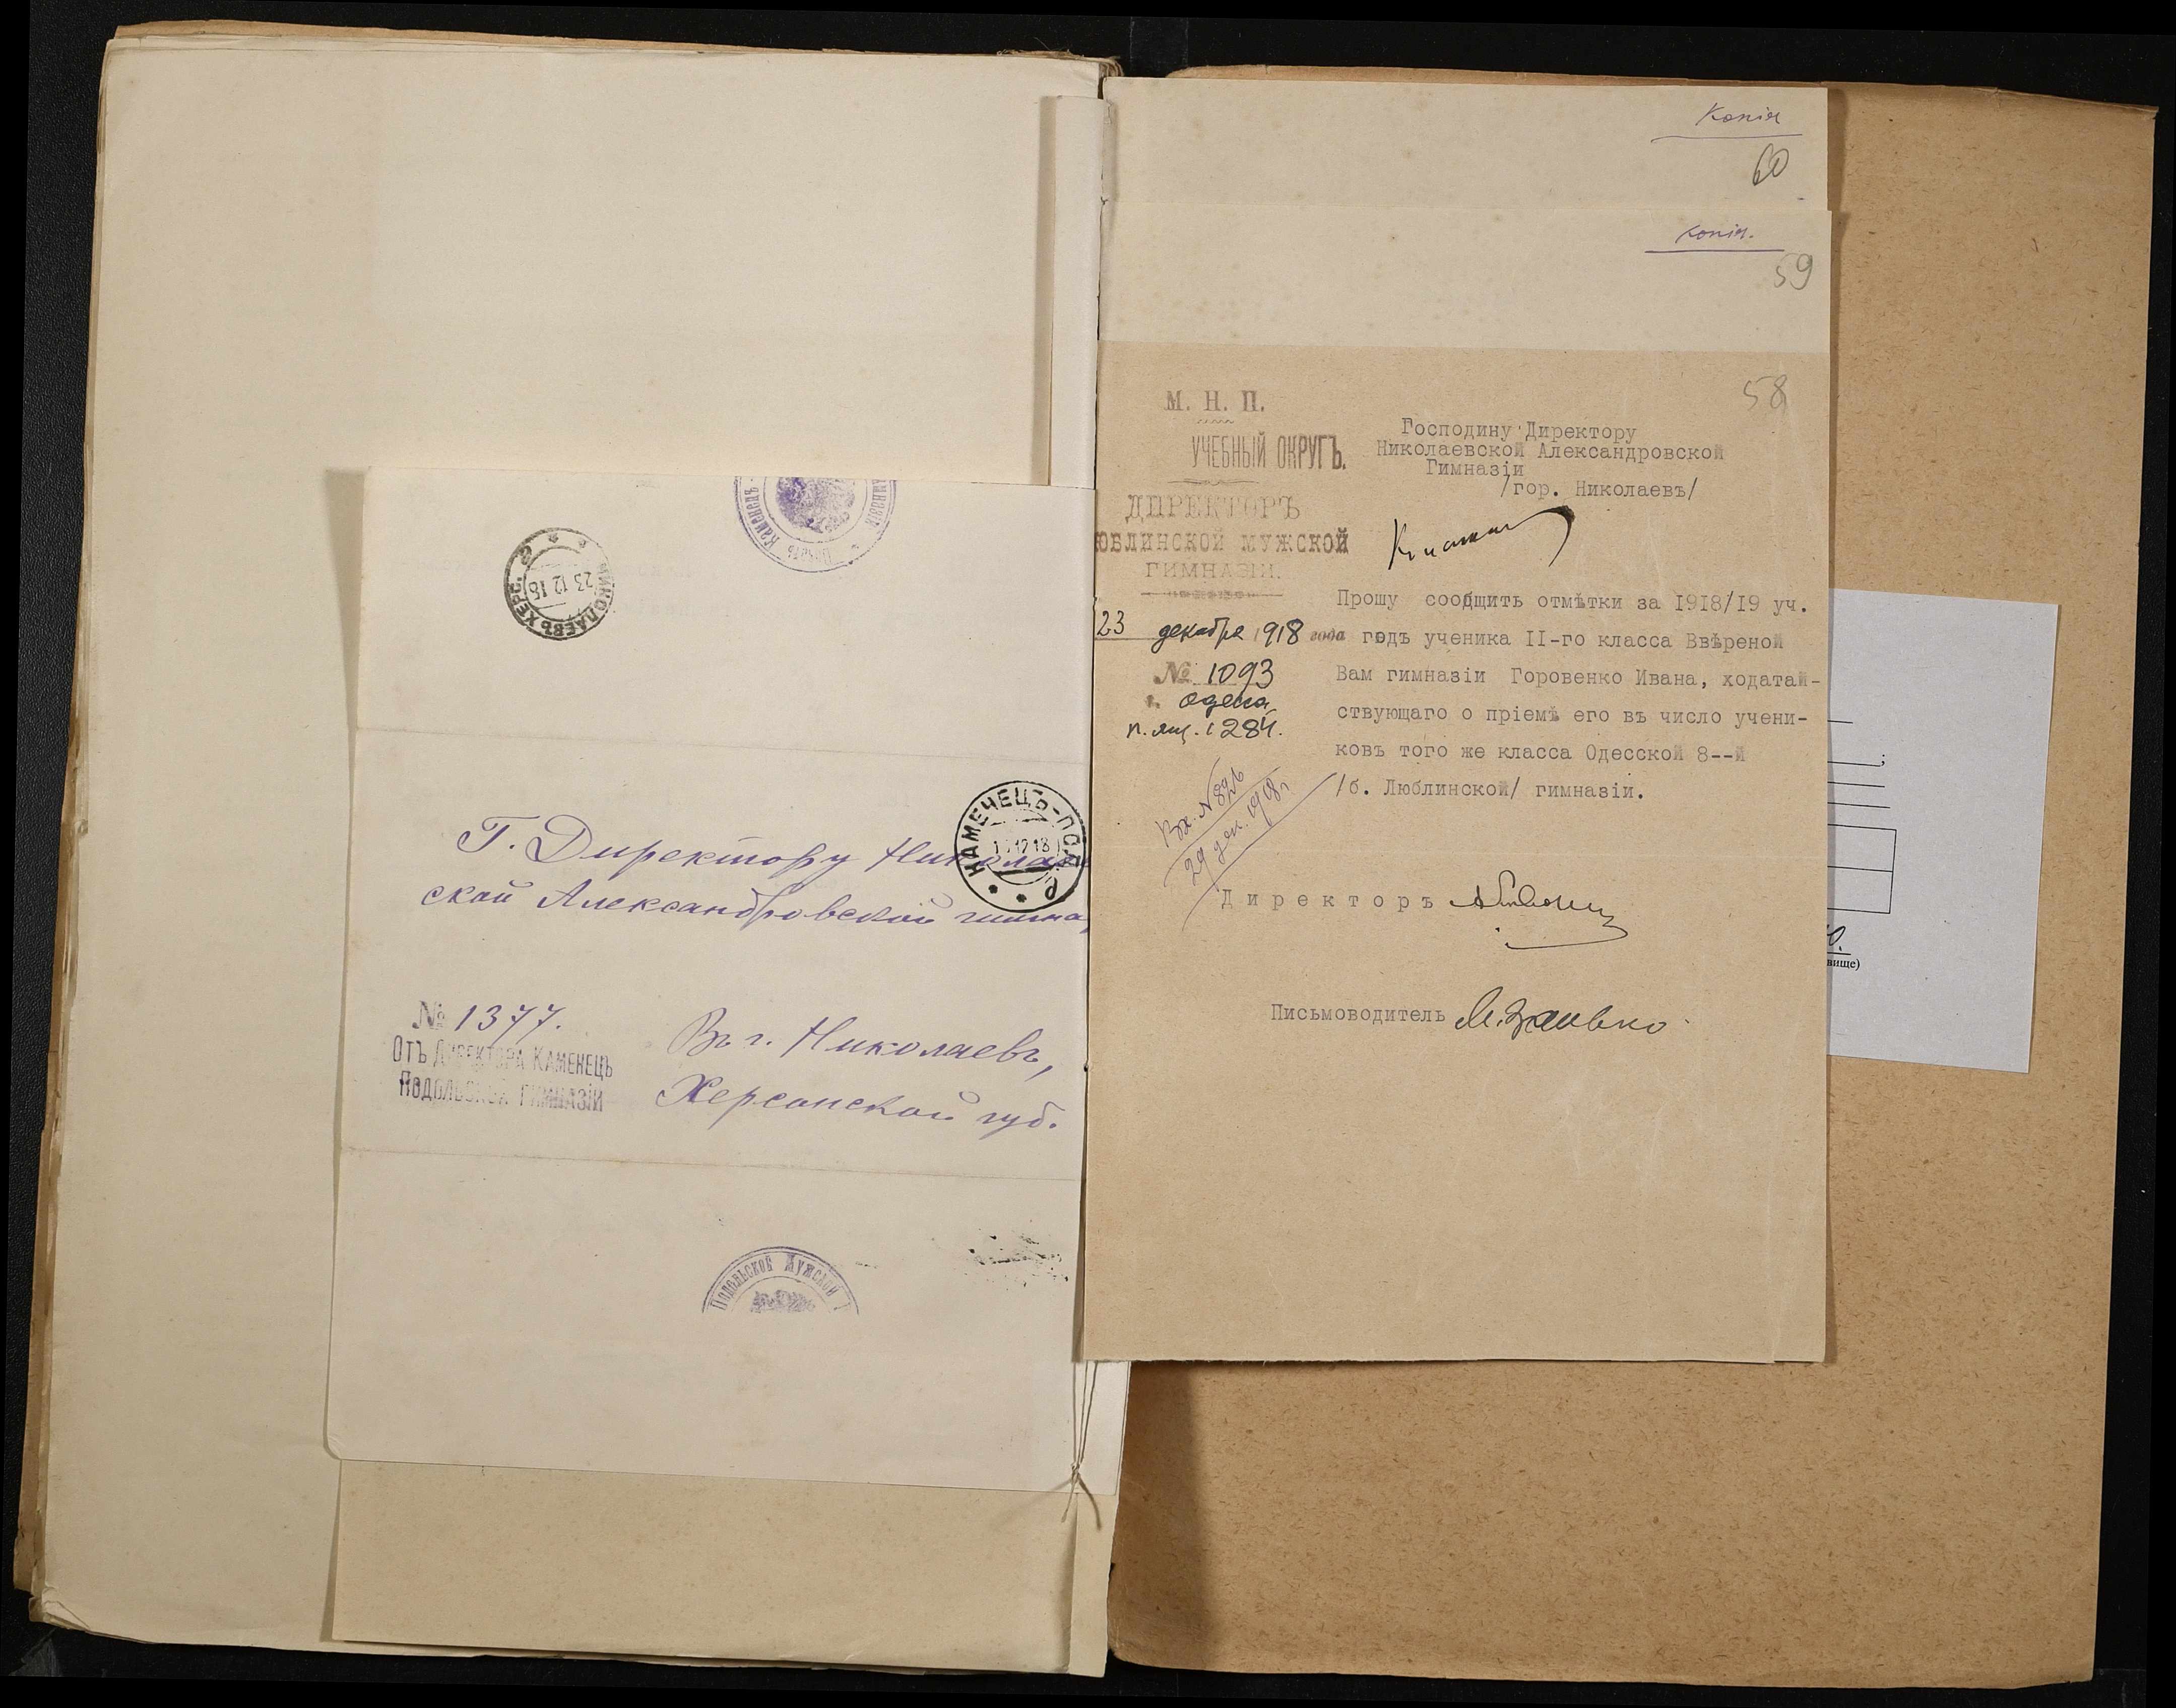 НИКОЛАЕВЪ ХЕРС.
23 12 18
КАМЕНЕЦЪ-ПОД.
12 18
Г. Директору Николаев
ской Александровской гимна
№ 1377.
ОТЪ ДИРЕКТОРА КАМЕНЕЦЪ
ПОДОЛЬСКОЙ ГИМНАЗІИ
Въ г. Николаевъ,
Херсонской губ.
Подольской Мужской Г
Копія
60
копія.
59
58
М. Н. П.
УЧЕБНЫЙ ОКРУГЪ.
ДИРЕКТОРЪ
ЮБЛИНСКОЙ МУЖСКОЙ
ГИМНАЗІИ.
23 декабря 1918 года
№ 1093
г. Одесса
п. ящ. 1284.
Вх. № 826
29 дек. 1918 г.
Господину Директору
Николаевской Александровской
Гимназіи
/гор. Николаевъ/
Прошу сообщить отмѣтки за 1918/19 уч.
годъ ученика II-го класса Ввѣреной
Вам гимназіи Горовенко Ивана, ходатай-
ствующаго о пріемѣ его въ число учени-
ковъ того же класса Одесской 8--й
/б. Люблинской/ гимназіи.
Директоръ
Письмоводитель
вище)